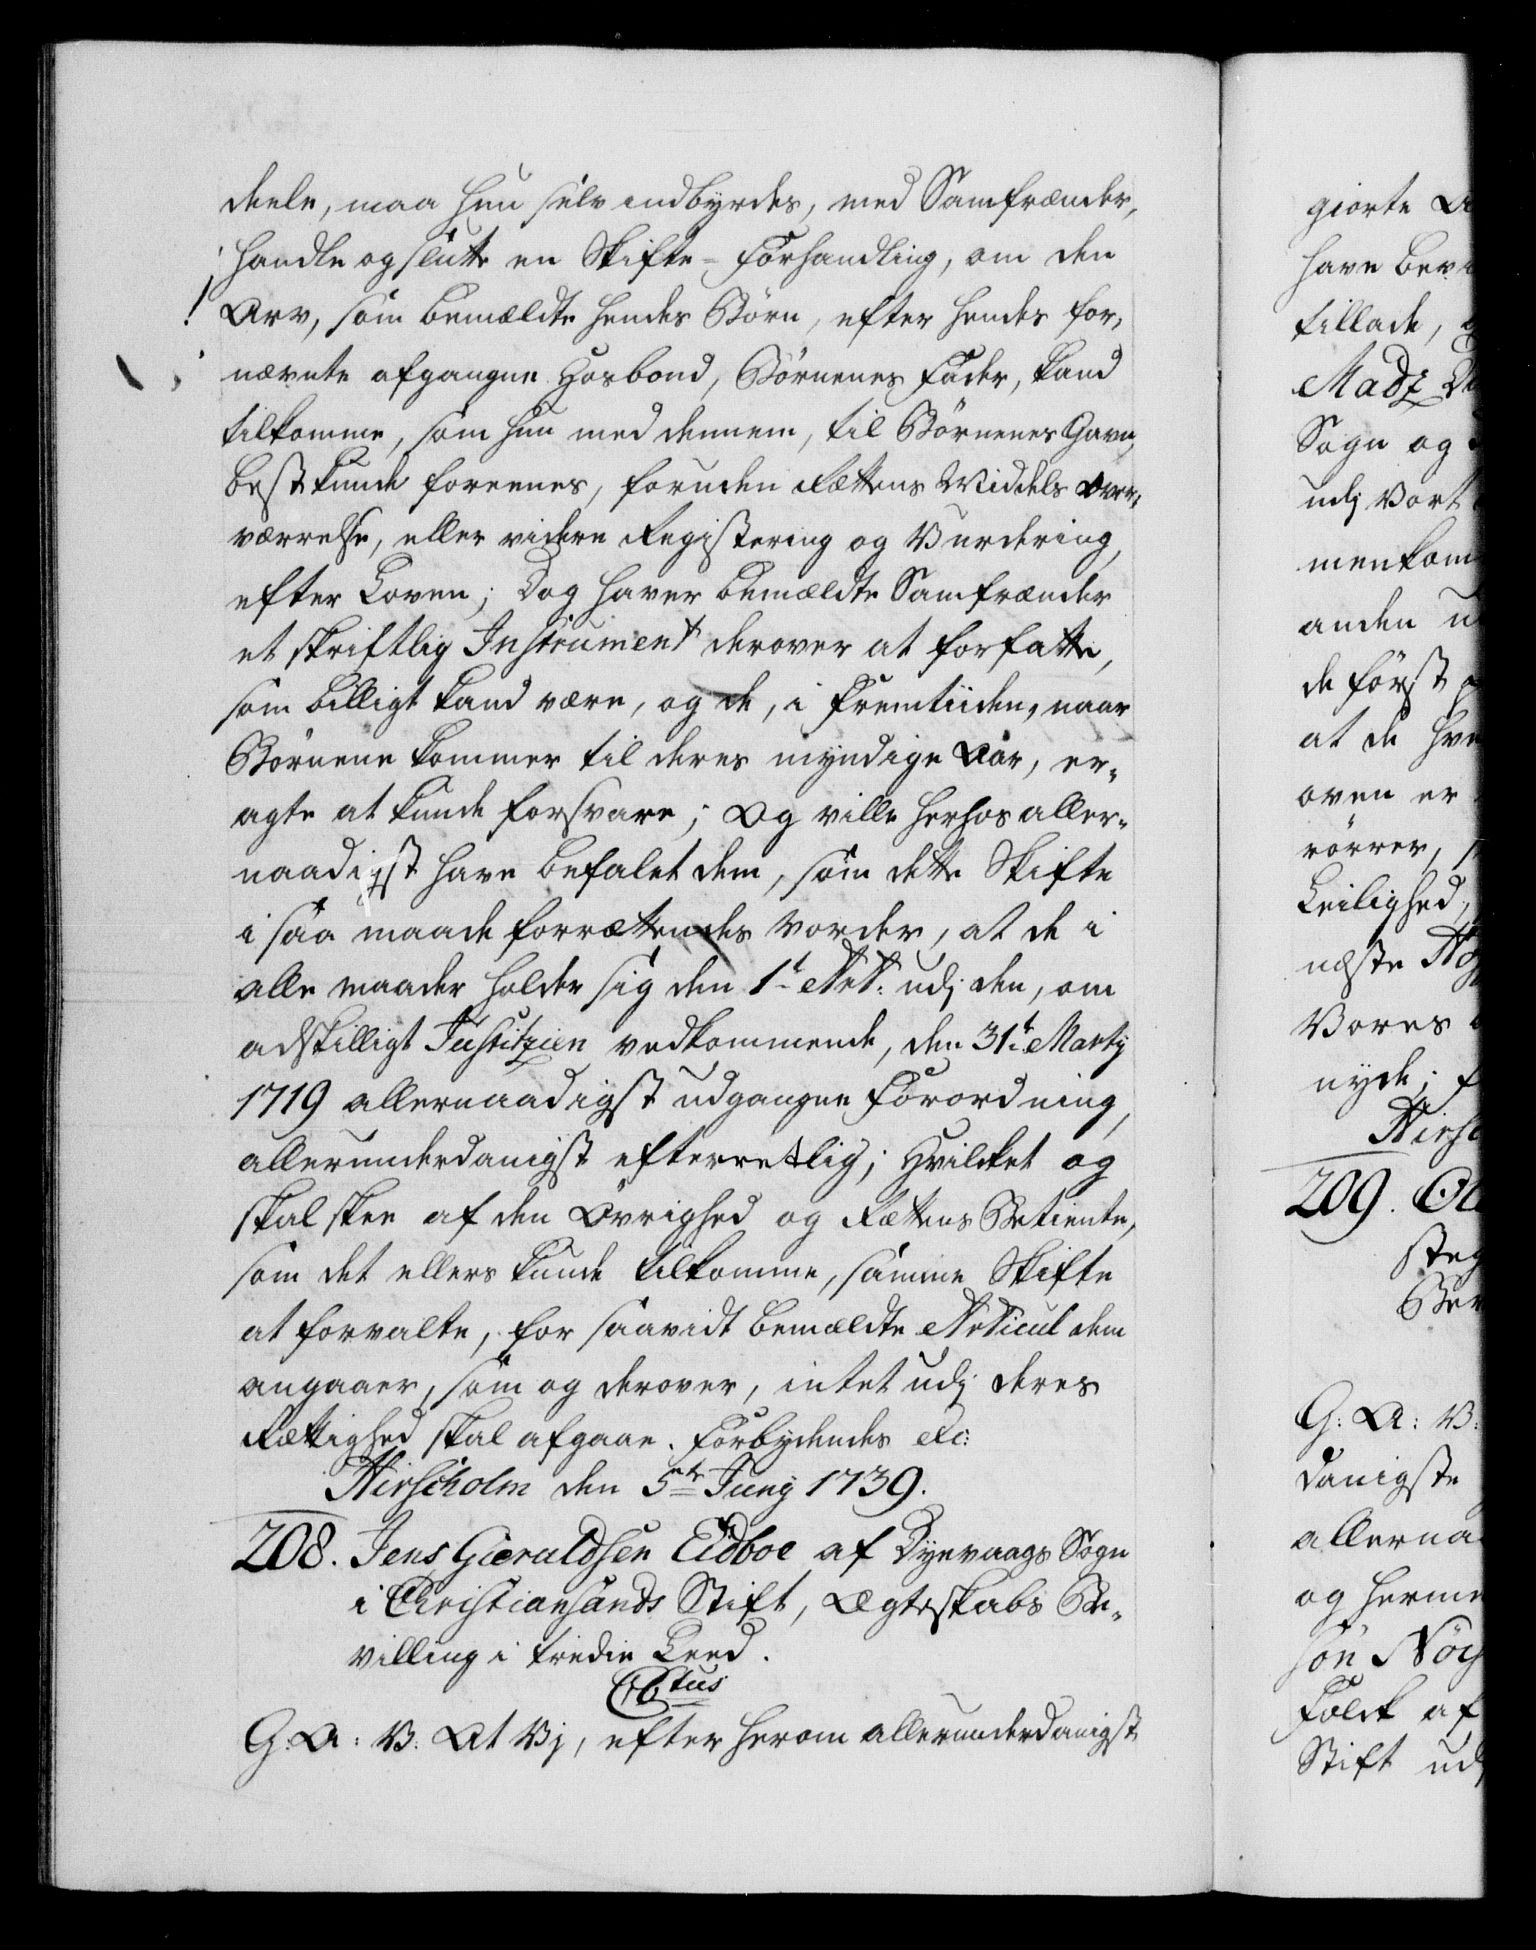 deele, maa hun selv indbyrdes, med Samfrænder,
handle og slutte en Skifte-Forhandling, om den
Arv, som bemældte hendes Börn, efter hendes for,
nævnte afgangne Hosbond, Börnenes Fader, kand
tilkomme, som hun med dennem, til Börnenes Gavn,
best kunde foreenes, foruden Rættens Middels Over,,
værrelse, eller videre Registering og Vurdering,
efter Loven; Dog haver bemældte Samfrænder
et skriftlig Instrument derover at forfatte,
som billigt kand være, og de, i Fremtiiden, naar
Börnene kommer til deres myndige Aar, er,,
agte at kunde forsvare; Og ville herhos aller,,
naadigst have befalet dem, som dette Skifte
i saa maade forrettendes vorder, at de i
alle maader holder sig den 1t Art: udj den, om
adskilligt Justitzien vedkommende, den 31t Martij
1719 allernaadigst udgangne Forordning,
allerunderdanigst efterretlig; Hvilcket og
skal skee af den Övrighed og Rættens Betiente,
som det ellers kunde tilkomme, samme Skifte
at forvalte, for saavidt bemældte Articul dem
angaaer, som og derover, intet udj deres
Rættighed skal afgaae. Forbydendes etc:
Hirscholm den 5te Junij 1739.
208. Jens Gieruldsen Eidboe af Dynvaags Sogn
i Christiansands Stift, Ægteskabs Be,,
villing i tredie Leed.
C6tus
G: A: V: At Vj, efter herom allerunderdanigst
giorte A
have bev
tillade,
Madz
Sogn og
udj vort
menkom
anden
de först
at de hve
oven er
rörrer,
Leilighed,
næste
Vores
nyde; F
Hirsc
209. Ol
steg
Ber
G: A: V:
danigste
allerna
og herme
sön Nör
Folck af
Stift udj